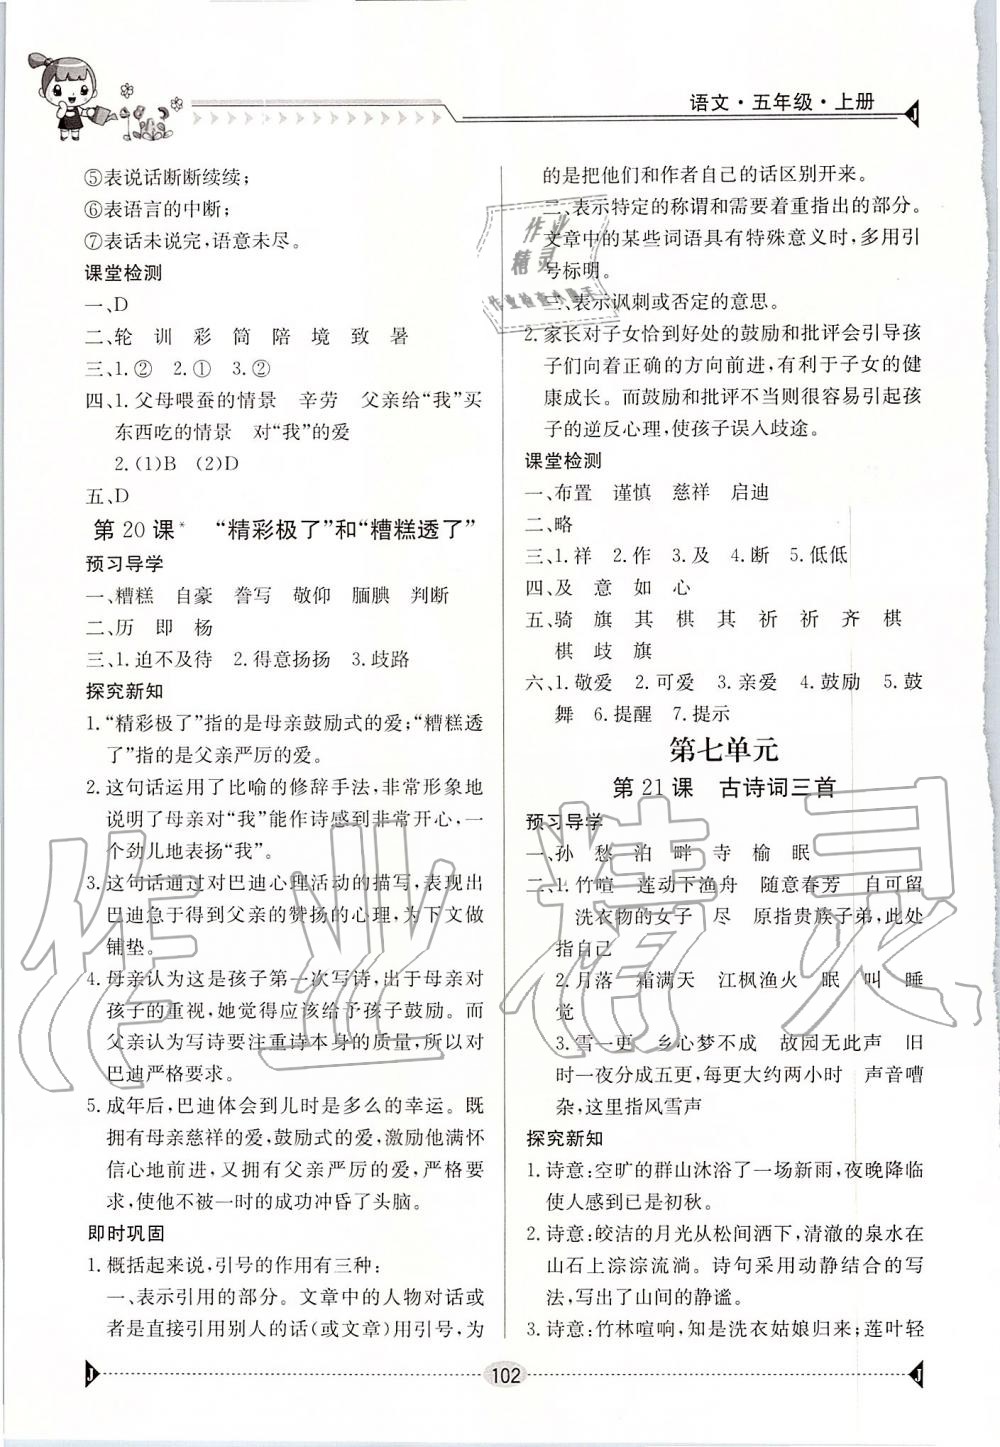 语文·五年级·上册
⑤表说话断断续续;
⑥表语言的中断;
⑦表话未说完,语意未尽。
课堂检测
一、D
二、轮 训 彩 筒 陪 境 致 暑
三、1.② 2.① 3.②
四、1.父母喂蚕的情景 辛劳 父亲给“我”买
东西吃的情景 对“我”的爱
2.(1)B (2)D
五、D
第 20 课* “精彩极了”和“糟糕透了”
预习导学
一、糟糕 自豪 誊写 敬仰 腼腆 判断
二、历 即 杨
三、1.迫不及待 2.得意扬扬 3.歧路
探究新知
1.“精彩极了”指的是母亲鼓励式的爱;“糟糕透
了”指的是父亲严厉的爱。
2.这句话运用了比喻的修辞手法,非常形象地
说明了母亲对“我”能作诗感到非常开心,一
个劲儿地表扬“我”。
3.这句话通过对巴迪心理活动的描写,表现出
巴迪急于得到父亲的赞扬的心理,为下文做
铺垫。
4.母亲认为这是孩子第一次写诗,出于母亲对
孩子的重视,她觉得应该给予孩子鼓励。而
父亲认为写诗要注重诗本身的质量,所以对
巴迪严格要求。
5.成年后,巴迪体会到儿时是多么的幸运。既
拥有母亲慈祥的爱,鼓励式的爱,激励他满怀
信心地前进,又拥有父亲严厉的爱,严格要
求,使他不被一时的成功冲昏了头脑。
即时巩固
1.概括起来说,引号的作用有三种:
一、表示引用的部分。文章中的人物对话或
者是直接引用别人的话(或文章)用引号,为
的是把他们和作者自己的话区别开来。
二、表示特定的称谓和需要着重指出的部分。
文章中的某些词语具有特殊意义时,多用引
号标明。
三、表示讽刺或否定的意思。
2.家长对子女恰到好处的鼓励和批评会引导孩
子们向着正确的方向前进,有利于子女的健
康成长。而鼓励和批评不当则很容易引起孩
子的逆反心理,使孩子误入歧途。
课堂检测
一、布置 谨慎 慈祥 启迪
二、略
三、1.祥 2.作 3.及 4.断 5.低低
四、及 意 如 心
五、骑 旗 其 棋 其 祈 祈 齐 棋
棋 歧 旗
六、1.敬爱 2.可爱 3.亲爱 4.鼓励 5.鼓
舞 6.提醒 7.提示
第七单元
第 21 课 古诗词三首
预习导学
一、孙 愁 泊 畔 寺 榆 眠
二、1.竹喧 莲动下渔舟 随意春芳 自可留
洗衣物的女子 尽 原指贵族子弟,此处
指自己
2.月落 霜满天 江枫渔火 眠 叫 睡
觉
3.雪一更 乡心梦不成 故园无此声 旧
时一夜分成五更,每更大约两小时 声音嘈
杂,这里指风雪声
探究新知
1.诗意:空旷的群山沐浴了一场新雨,夜晚降临
使人感到已是初秋。
2.诗意:皎洁的月光从松间洒下,清澈的泉水在
山石上淙淙流淌。诗句采用动静结合的写
法,写出了山间的静谧。
3.诗意:竹林喧响,知是洗衣姑娘归来;莲叶轻
102
作业
精灵
作业检查小助手
作业精灵